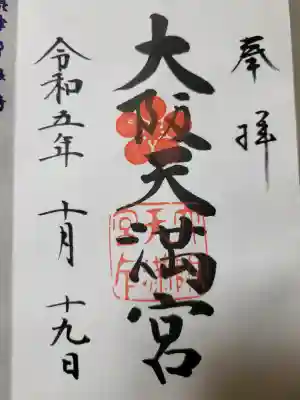 奉拝
大阪天満宮
令和五年 十月 十九日